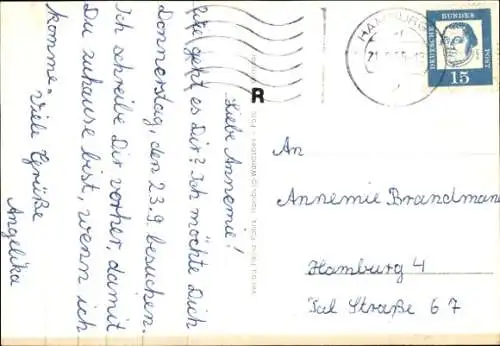 Liebe Annemie!
wie geht es Dir? Ich möchte Dich
Donnerstag, den 23.9. besuchen.
Ich schreibe Dir vorher, damit
Du zuhause bist, wenn ich
komme. Viele Grüße
Angelika
R
HAMBURG
DEUTSCHE BUNDESPOST
15
An
Annemie Brandmann
Hamburg 4
Tal Straße 67